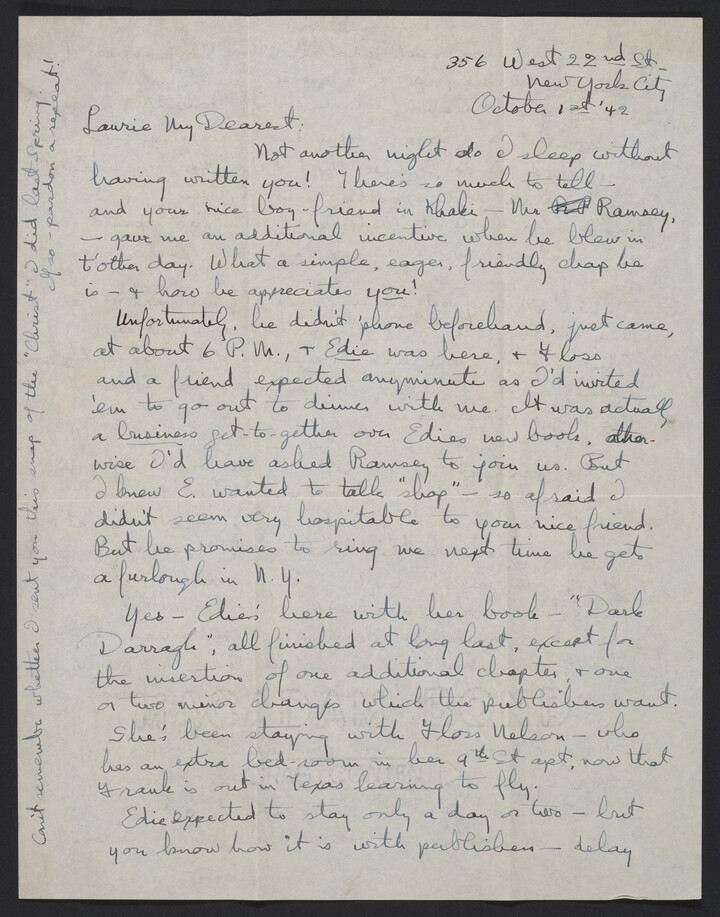 356 West 22nd St-
New York City
October 1st '42
Laurie My Dearest:
Not another night do I sleep without
having written you! There's so much to tell -
and your nice boy-friend in Khaki - Mr Ramsey,
- gave me an additional incentive when he blew in
t'other day. What a simple, eager, friendly chap he
is - & how he appreciates you!
Unfortunately, he didn't 'phone beforehand, just came,
at about 6 P.M., & Edie was here, & Floss
and a friend expected anyminute as I'd invited
'em to go out to dinner with me. It was actually
a business get-to-gether over Edies new book, other-
wise I'd have asked Ramsey to join us. But
I knew E. wanted to talk "shop" - so afraid I
didn't seem very hospitable to your nice friend.
But he promises to ring me next time he gets
a furlough in N.Y.
Yes - Edie's here with her book - "Dark
Darragh", all finished at long last, except for
the insertion of one additional chapter, & one
or two minor changes which the publishers want.
She's been staying with Floss Nelson - who
has an extra bed-room in her 9th St apt, now that
Frank is out in Texas learning to fly.
Edie expected to stay only a day or two - but
you know how it is with publishers - delay
Can't remember whether I sent you this snap of the "Christ" I did last Spring.
If so - pardon a repeat!